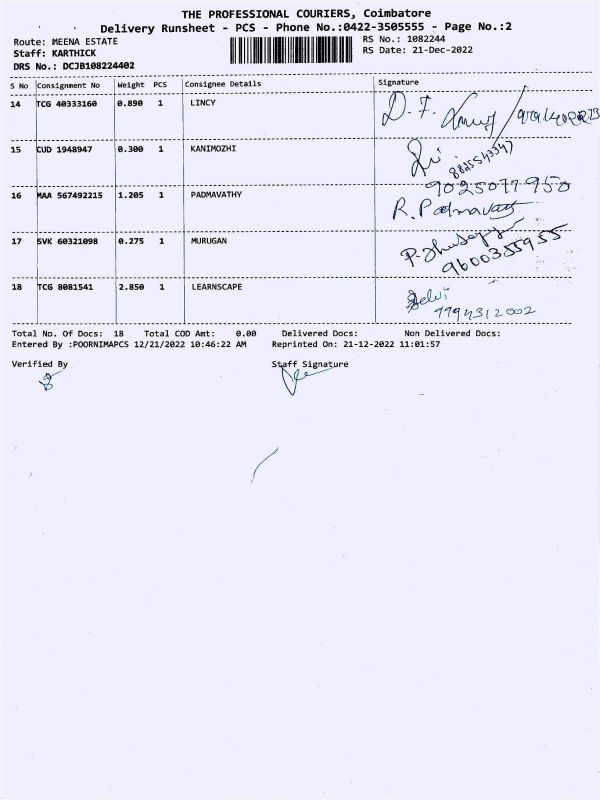 THE PROFESSIONAL COURIERS, Coimbatore
Delivery Runsheet - PCS - Phone No.:0422-3505555 - Page No.:2
Route: MEENA ESTATE
RS No.: 1082244
Staff: KARTHICK
RS Date: 21-Dec-2022
DRS No.: DCJB108224402
S No Consignment No Weight PCS Consignee Details Signature
14 TCG 40333160 0.890 1 LINCY
D. F.
15 CUD 1948947 0.300 1 KANIMOZHI
8825543347
9025077950
16 MAA 567492215 1.205 1 PADMAVATHY R. Padmavathy
17 SVK 60321098 0.275 1 MURUGAN
9600355955
18 TCG 8081541 2.850 1 LEARNSCAPE Selvi
9994312002
Total No. Of Docs: 18 Total COD Amt: 0.00 Delivered Docs: Non Delivered Docs:
Entered By :POORNIMAPCS 12/21/2022 10:46:22 AM Reprinted On: 21-12-2022 11:01:57
Verified By Staff Signature